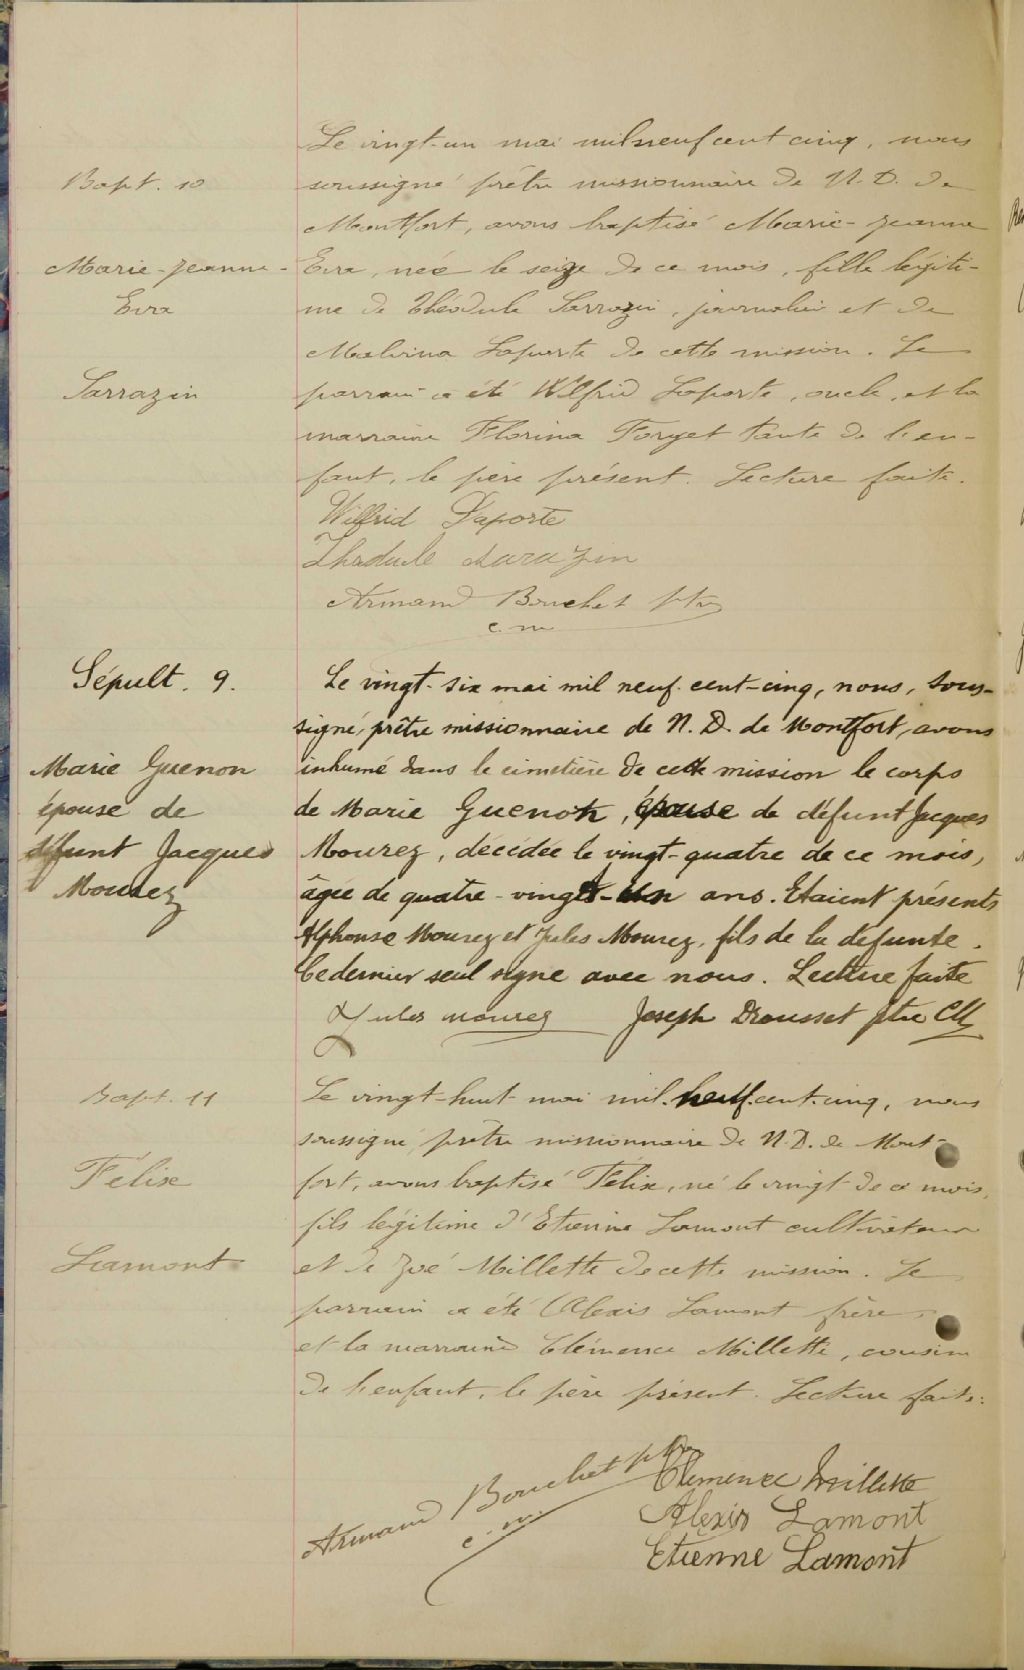 Le vingt-un mai mil neuf cent cinq, nous
Bapt. 10
soussigné prêtre missionnaire de N. D. de
Montfort, avons baptisé Marie-Jeanne
Marie-Jeanne-
Eva, née le seize de ce mois, fille légiti-
Eva
me de Théodule Sarrazin, journalier et de
Malvina Laporte de cette mission. Le
Sarrazin
parrain a été Wilfrid Laporte, oncle, et la
marraine Florina Forget tante de l'en-
fant, le père présent. Lecture faite.
Wilfrid Laporte
Théodule Sarazin
Armand Bouchet ptre
c. m
Sépult. 9.
Le vingt-six mai mil neuf-cent-cinq, nous, sous-
signé, prêtre missionnaire de N. D. de Montfort, avons
Marie Guenon
inhumé dans le cimetière de cette mission le corps
épouse de
de Marie Guenon, épouse de défunt Jacques
défunt Jacques
Mourez, décédée le vingt-quatre de ce mois,
Mourez
âgée de quatre-vingt- ans. Etaient présents
Alphonse Mourez et Jules Mourez, fils de la défunte.
Ce dernier seul signe avec nous. Lecture faite
Jules Mourez Joseph Drousset ptre CM
Bapt. 11
Le vingt-huit mai mil-neuf-cent-cinq, nous
soussigné, prêtre missionnaire de N. D. de Mont-
Félix
fort, avons baptisé Félix, né le vingt de ce mois,
fils légitime d'Etienne Lamont cultivateur
Lamont
et de Zoé Millette de cette mission. Le
parrain a été Alexis Lamont frère,
et la marraine Clémence Millette, cousine
de l'enfant, le père présent. Lecture faite.
Armand Bouchet ptre
c. m.
Clemence Millette
Alexis Lamont
Etienne Lamont